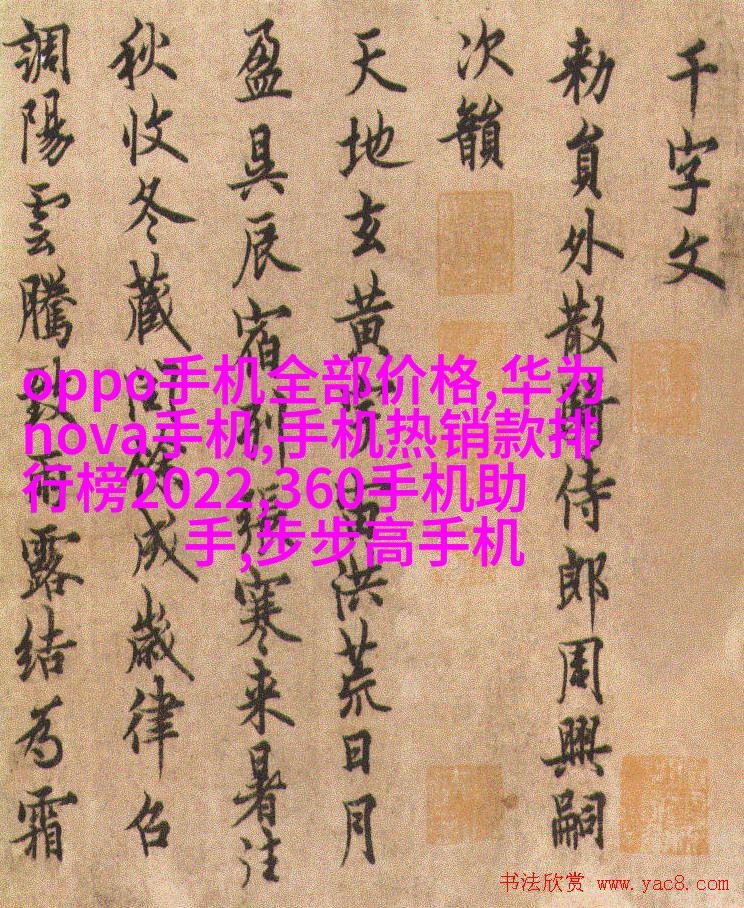 千字文
勑員外散騎侍郎周興嗣
次韻
天地玄黃宇宙洪荒日月
盈昃辰宿列張寒来暑往
秋收冬蔵閏餘成歲律召
調陽雲騰致雨露結為霜
oppo手机全部价格,华为
nova手机,手机热销款排
行榜2022,360手机助
手,步步高手机
书法欣赏 www.yac8.com